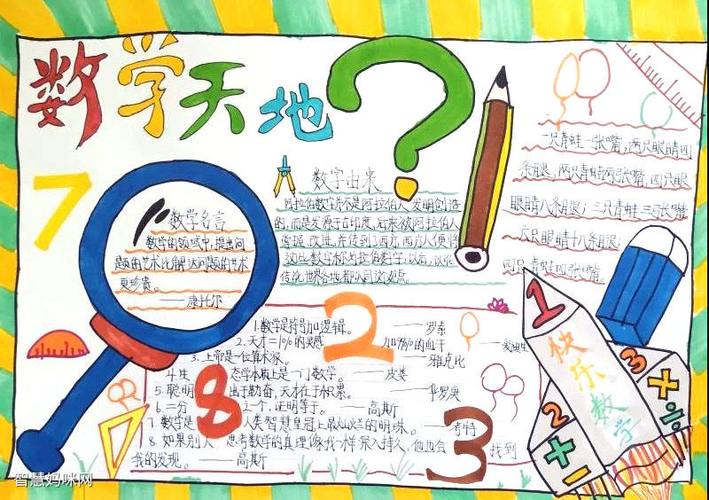 数学天地
?
7
数学名言
数学的领域中，提出问
题的艺术比解答问题的艺术
更珍贵。
——康托尔
数字由来
阿拉伯数字并不是阿拉伯人发明创造
的，而是发源于古印度，后来被阿拉伯人
掌握、改进，并传到了西方，西方人便将
这些数字称为阿拉伯数字，以后，以讹
传讹，世界各地都认同这个
一只青蛙一张嘴，两只眼睛四
条腿，两只青蛙两张嘴，四只眼
睛八条腿；三只青蛙三张嘴
六只眼睛十八条腿；
四只青蛙四张嘴
1.数学是符号加逻辑。——罗素
2.天才=1%的灵感 加99%的血汗——爱迪生
3.上帝是一位算术家。——雅克比
4.生 态学本质上是一门数学。——皮娄
5.聪明 出于勤奋，天才在于积累。——华罗庚
6.三分 个，证明等于。——高斯
7.数学是 人类智慧皇冠上最灿烂的明珠。——考特
8.如果别人 思考数学的真理像我一样深入持久，他也会 找到
我的发现。——高斯
2
8
3
1
快乐数学
2
3
×
÷
+
1
智慧妈咪网